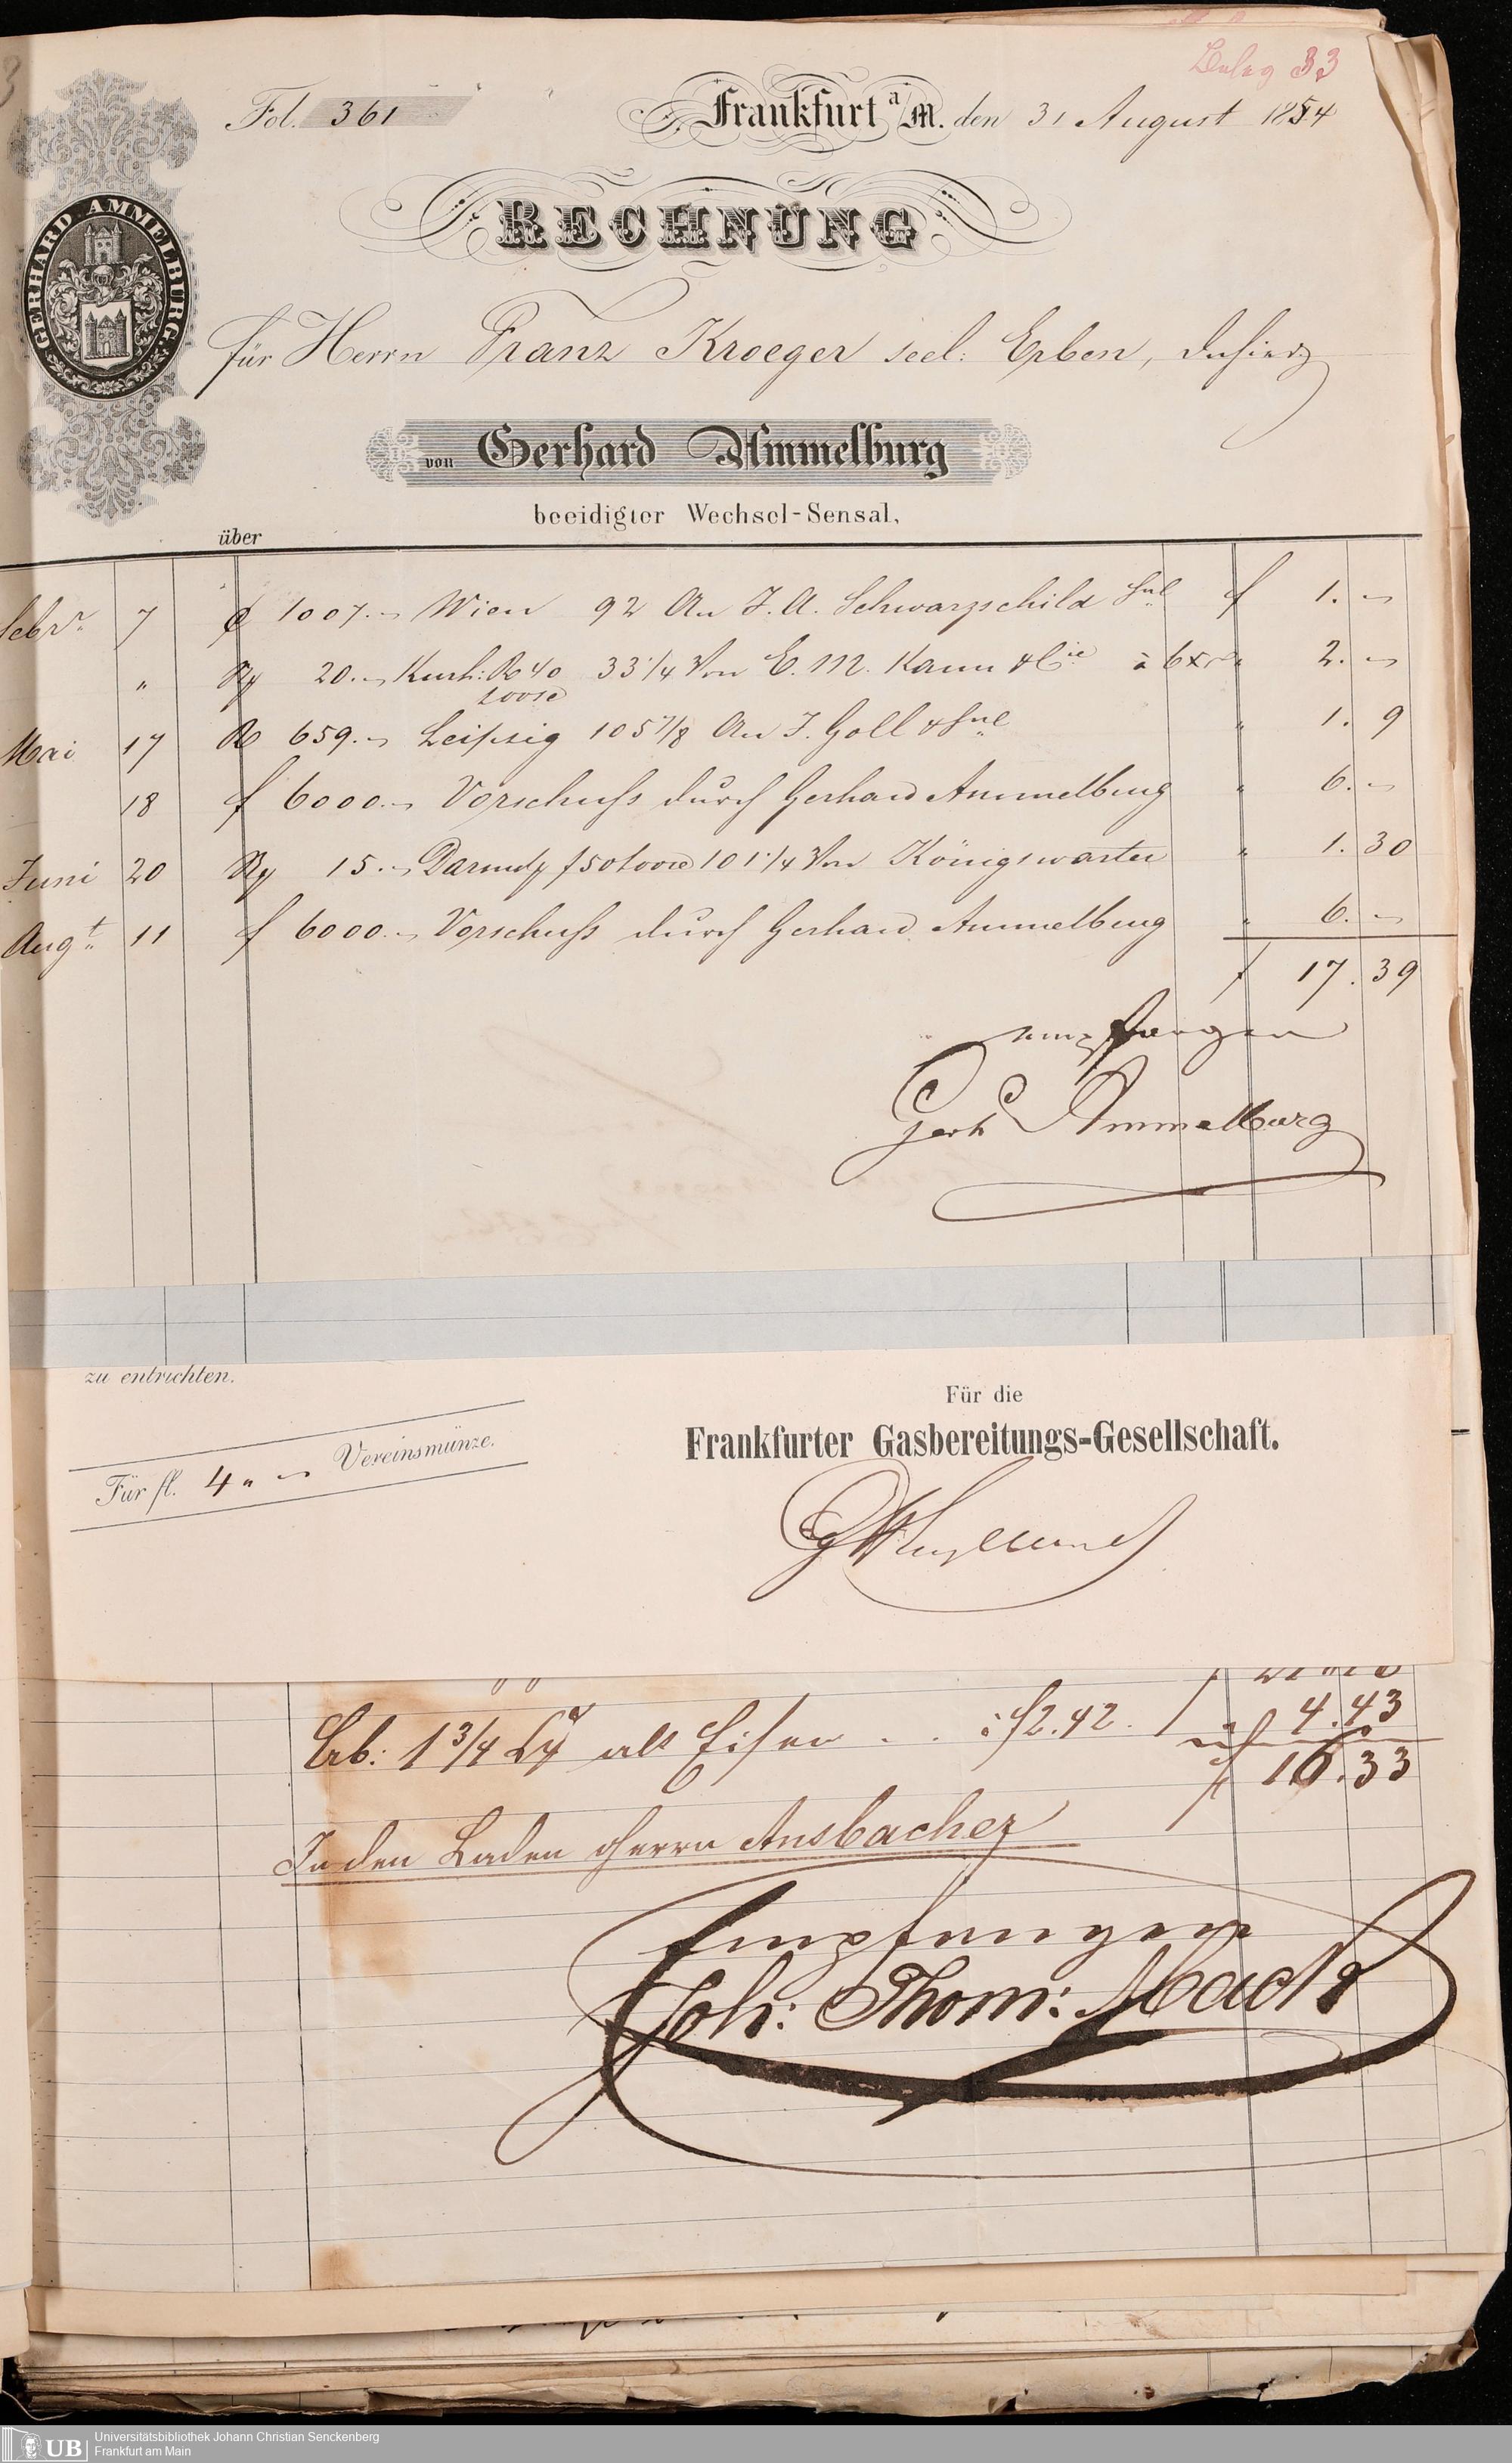 Beleg 33
Fol. 361 Frankfurt a/M. den 31 August 1854
RECHNUNG
GERHARD AMMELBURG.
für Herrn Franz Kroeger seel: Erben, dahier
von Gerhard Ammelburg
beeidigter Wechsel-Sensal,
über
Febr. 7 1007.~ Wien 92 An J. A. Schwarzschild f 1. ~
" 20.~ Kurh: 40 33 1/4 Von E. M. Kann & Cie à 6 xr " 2. ~
Loose
Mai 17 659.~ Leipzig 105 7/8 An J. Goll & " 1. 9
18 f 6000.~ Vorschuß durch Gerhard Ammelburg " 6. ~
Juni 20 15.~ f 50 Loose 101 1/4 Von Königswarter " 1. 30
Augt. 11 f 6000.~ Vorschuß durch Gerhard Ammelburg " 6. ~
f 17. 39
empfangen
Gerh Ammelburg
zu entrichten.
Für die
Frankfurter Gasbereitungs-Gesellschaft.
Für fl. 4 " ~ Vereinsmünze.
1 3/4 alt Eisen . . f 2.42. 4.43
f 16.33
In den Laden Herrn Ansbacher
Empfangen
Joh: Thom: Mack
UB Universitätsbibliothek Johann Christian Senckenberg
Frankfurt am Main